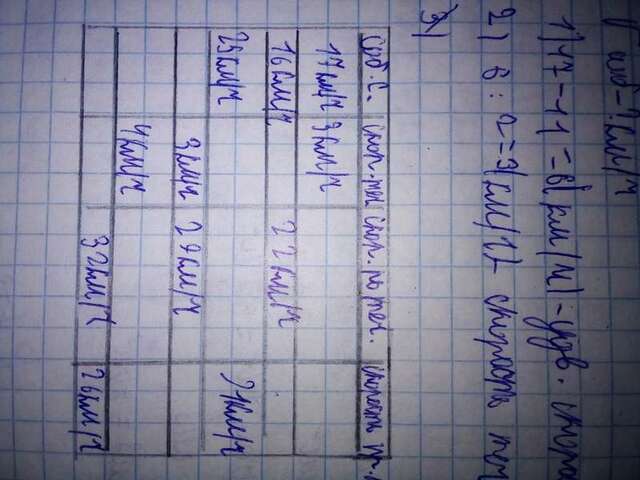 соб = ? км/ч
1) 17 - 11 = 6 (км/ч) - удв. скоро
2) 6 : 2 = 3 (км/ч) - скорость теч
3)
Соб. с. скор. теч скор. по теч. скорость пр.
17 км/ч 3 км/ч
16 км/ч 22 км/ч
25 км/ч 21 км/ч
3 км/ч 29 км/ч
4 км/ч
32 км/ч 26 км/ч